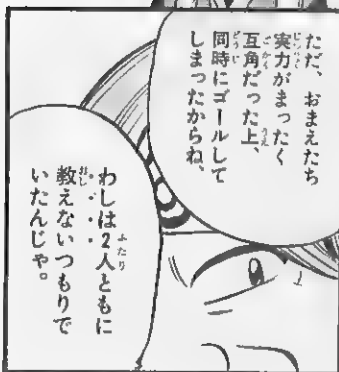 ただ、おまえたち
実力がまったく
互角だった上、
同時にゴールして
しまったからね、
わしは2人ともに
教えないつもりで
いたんじゃ。